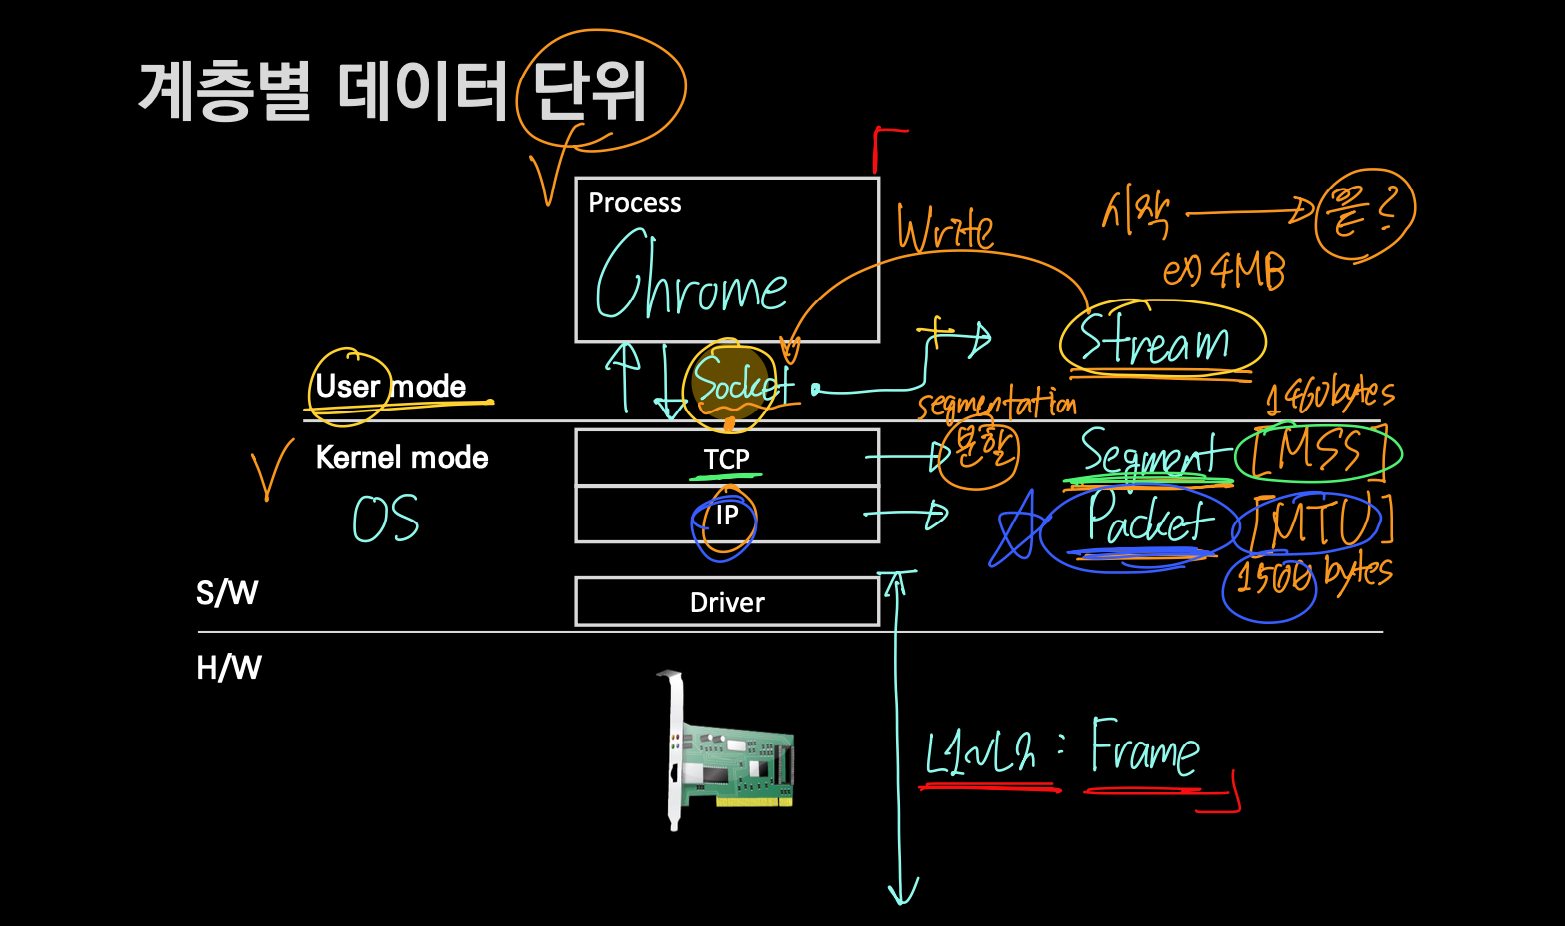 계층별 데이터 단위
Process
Chrome
Write
시작
끝?
ex) 4MB
Stream
Socket
User mode
segmentation
1460bytes
Kernel mode
TCP
분할
Segment
[MSS]
OS
IP
Packet
[MTU]
1500 bytes
S/W
Driver
H/W
L1~L2 : Frame